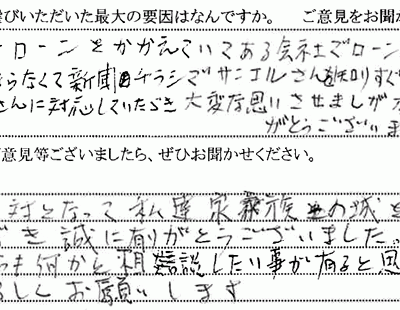 びいただいた最大の要因はなんですか。 ご意見をお聞か
ローンとかかえていてある会社でローン
らなくて新聞チラシでサニエルさんを知りすぐ
さんに対応していただき 大変な思いさせましたが
がとうございま
意見等ございましたら、ぜひお聞かせください。
対となって 私達 家族の城を
でき誠に有りがとうございました
も何かと相談したい事が有ると思
ろしく お願いします